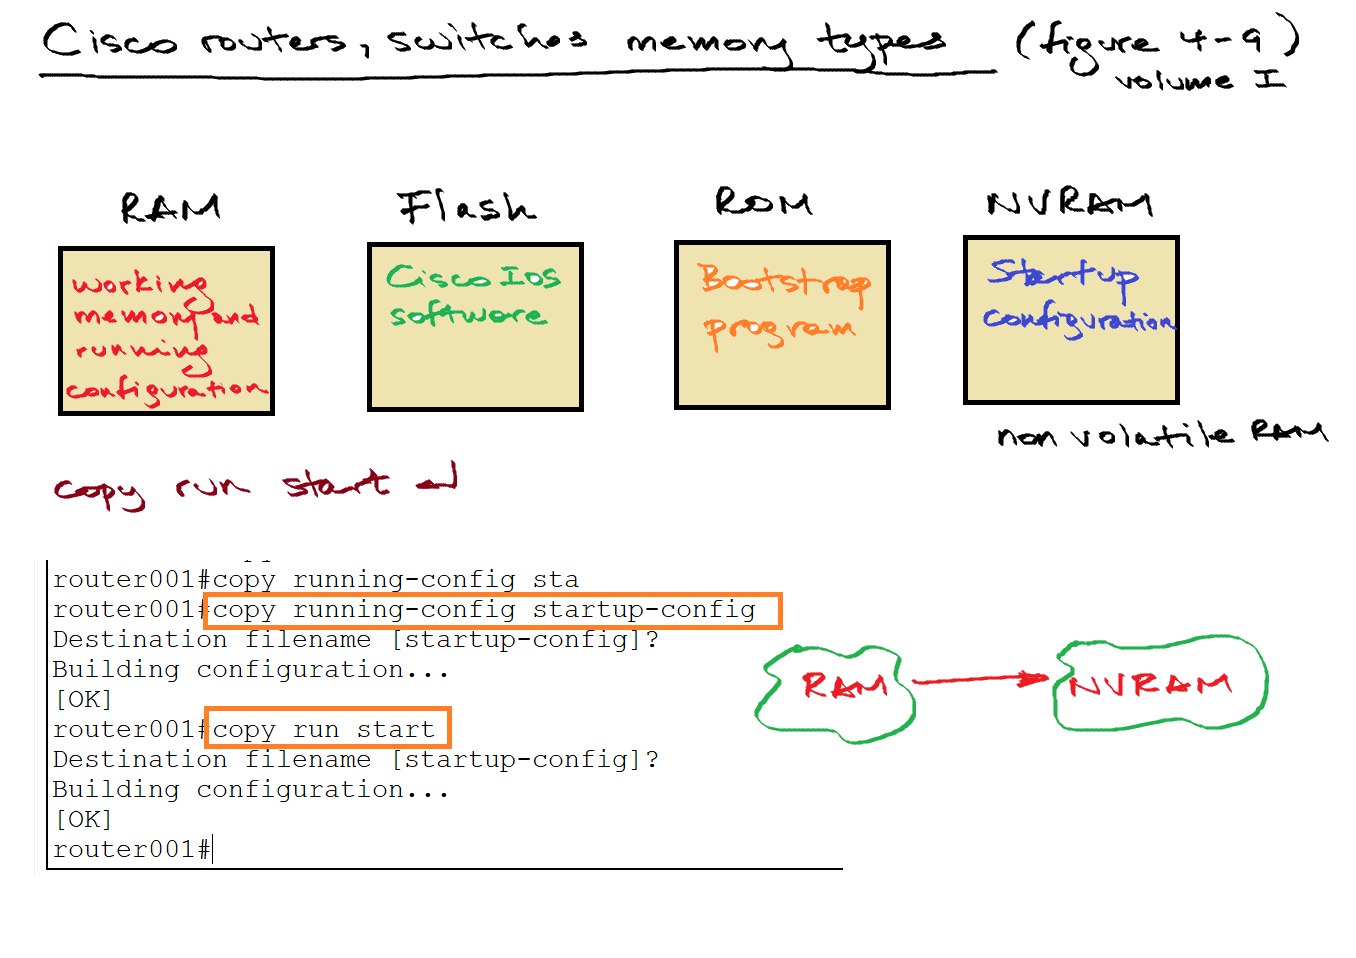 Cisco routers, switches memory types (figure 4-9)
volume I
RAM
Flash
ROM
NVRAM
working
memory and
running
configuration
Cisco IOS
software
Bootstrap
program
Startup
configuration
non volatile RAM
copy run start ↵
router001#copy running-config sta
router001#copy running-config startup-config
Destination filename [startup-config]?
Building configuration...
[OK]
router001#copy run start
Destination filename [startup-config]?
Building configuration...
[OK]
router001#
RAM
NVRAM